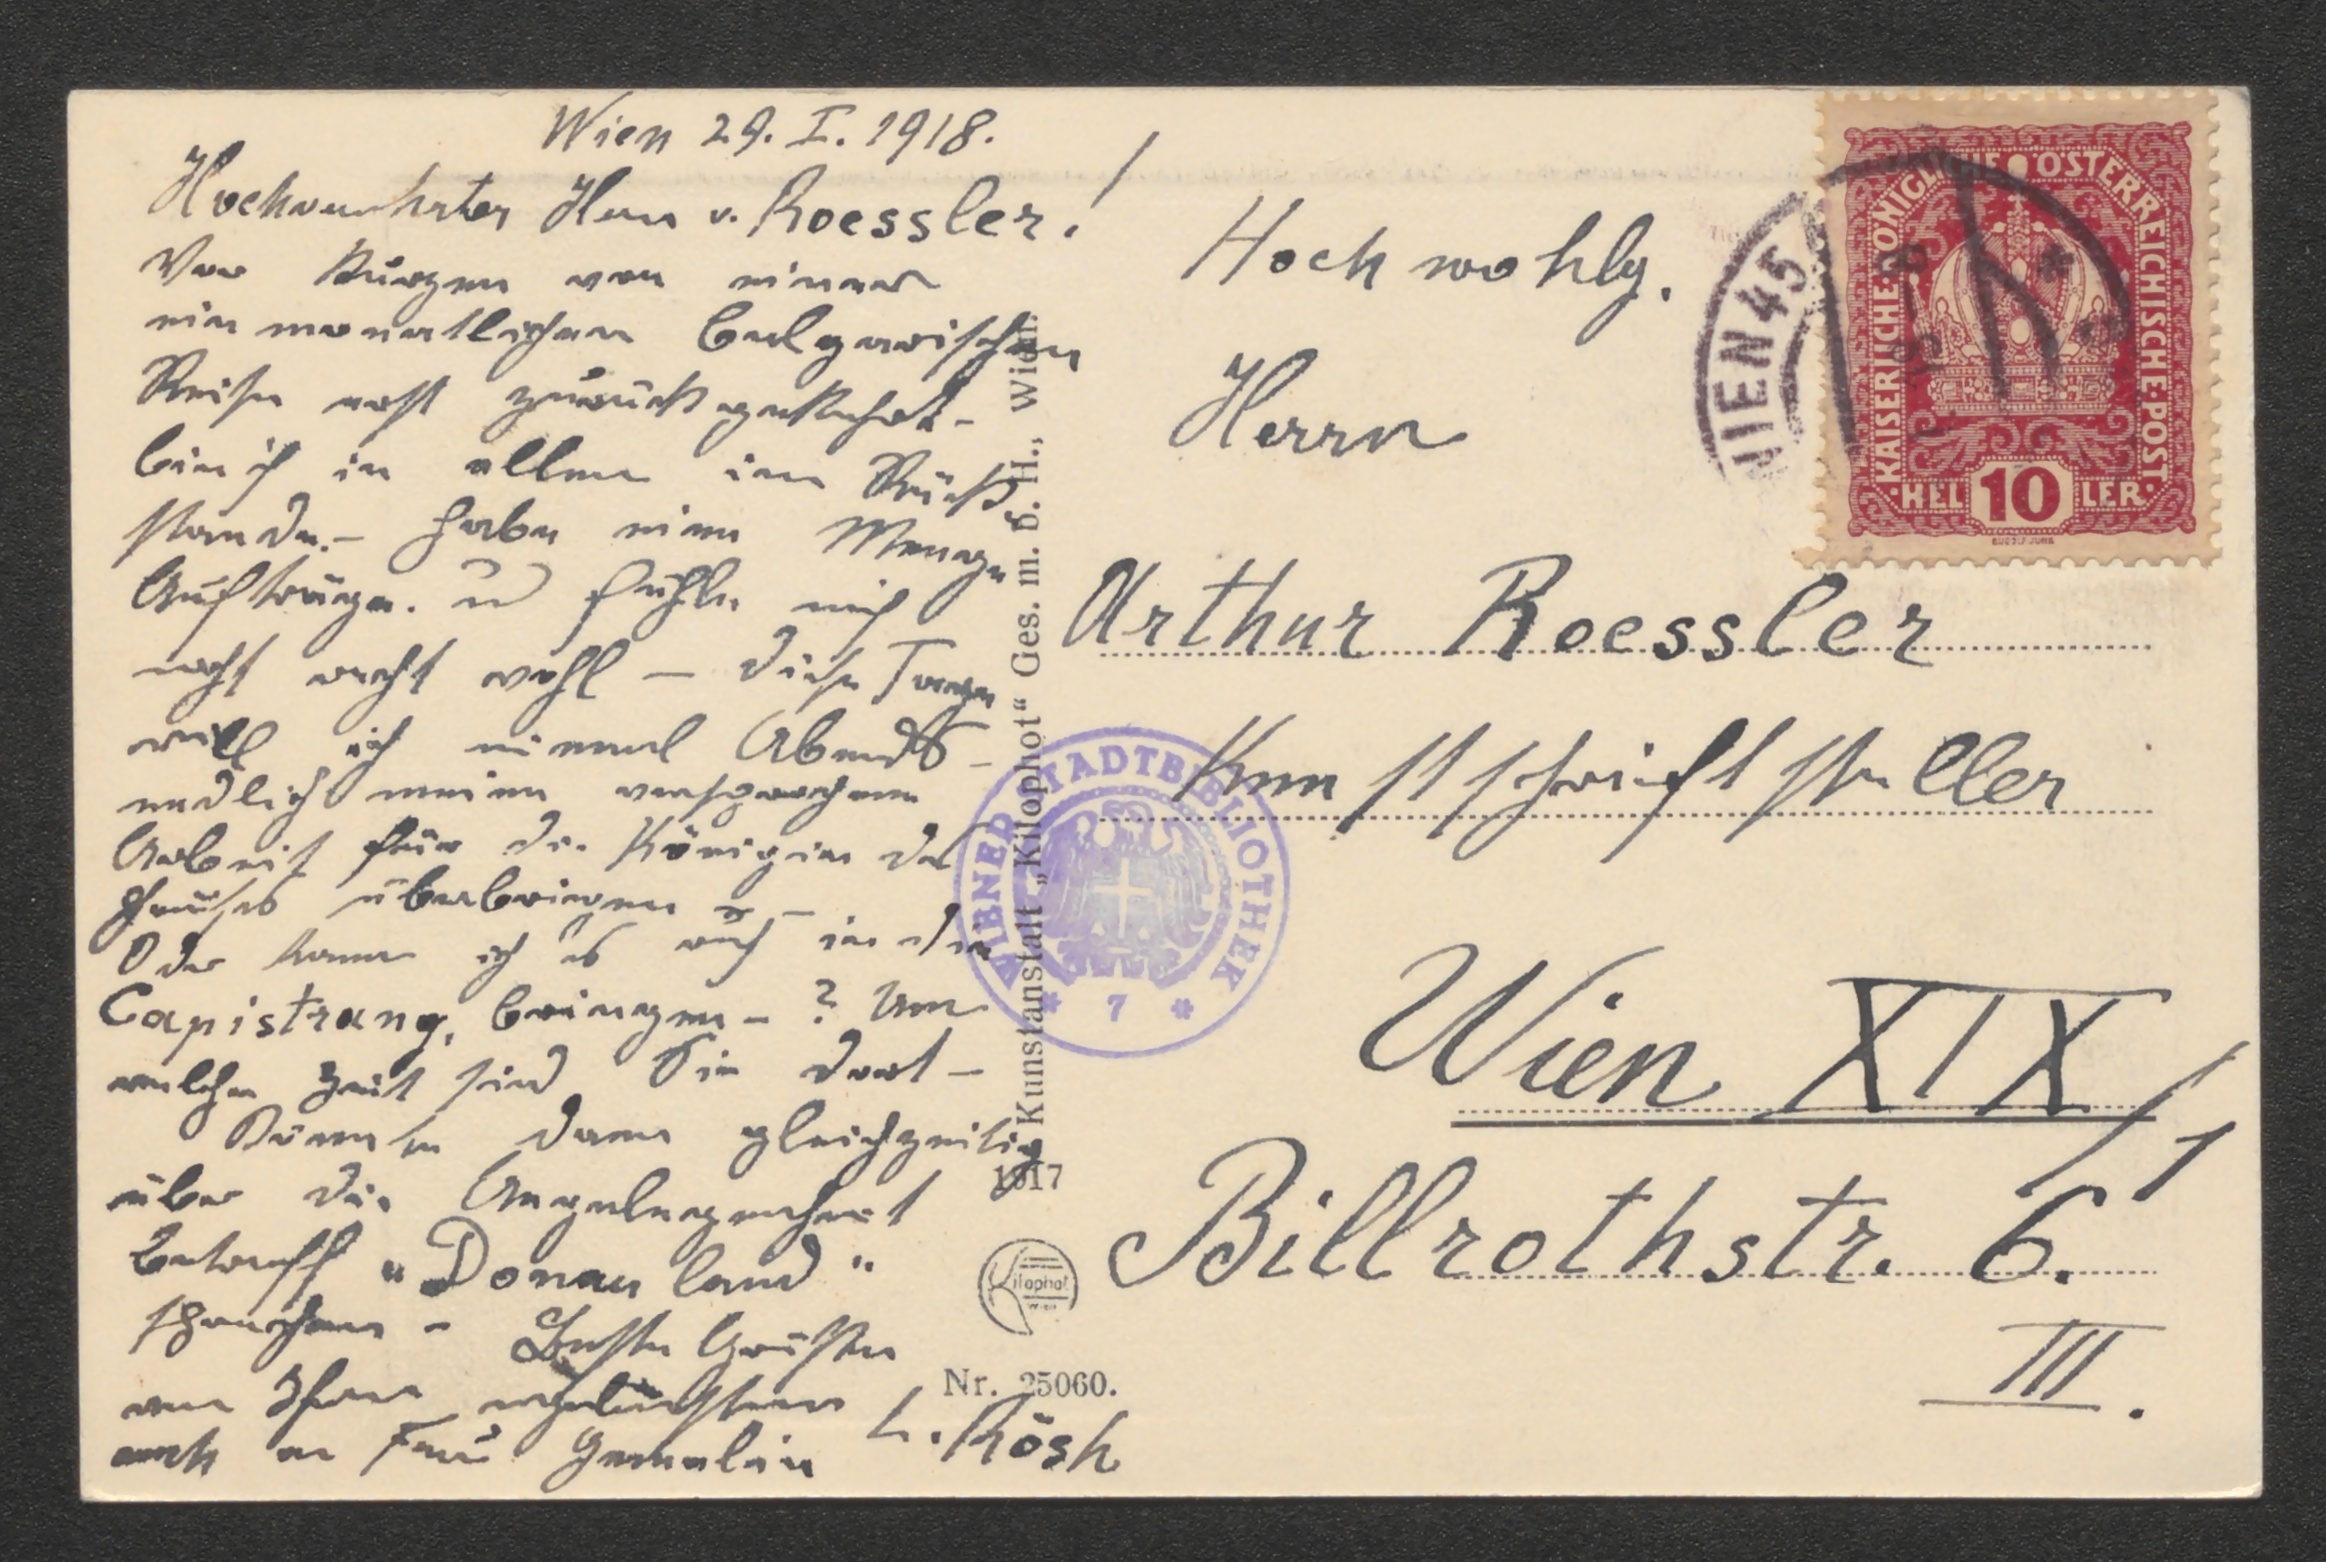 Wien 29. I. 1918.
Hochverehrter Herr v. Roessler!
Vor kurzem von einer
ein monatlichen bulgarischen
Reise erst zurückgekehrt -
bin ich in allem im Rück
stande. - habe eine Menge
Aufträge. u fühle mich
nicht recht wohl - diese Tage
will ich einmal Abends -
endlich meine versprochene
Arbeit für die Königin des
Hauses überbringen -
Oder kann ich es auch in die
Capistrang. bringen - ? Um
welche Zeit sind Sie dort -
Könnte dann gleichzeitig
über die Angelegenheit
betreff „Donauland"
sprechen - Beste Grüße
von Ihrem ergebensten
auch an Frau Gemalin L. Rösch
Hochwohlg.
Herrn
Arthur Roessler
Kunstschriftsteller
Wien XIX/1
Billrothstr. 6.
III.
KAISERLICHE KÖNIGLICHE ÖSTERREICHISCHE POST
HELLER 10
WIEN 45
WIENER STADTBIBLIOTHEK
* 7 *
Kunstanstalt „Kilophot" Ges. m. b. H., Wien.
1917
Kilophot
Wien
Nr. 25060.